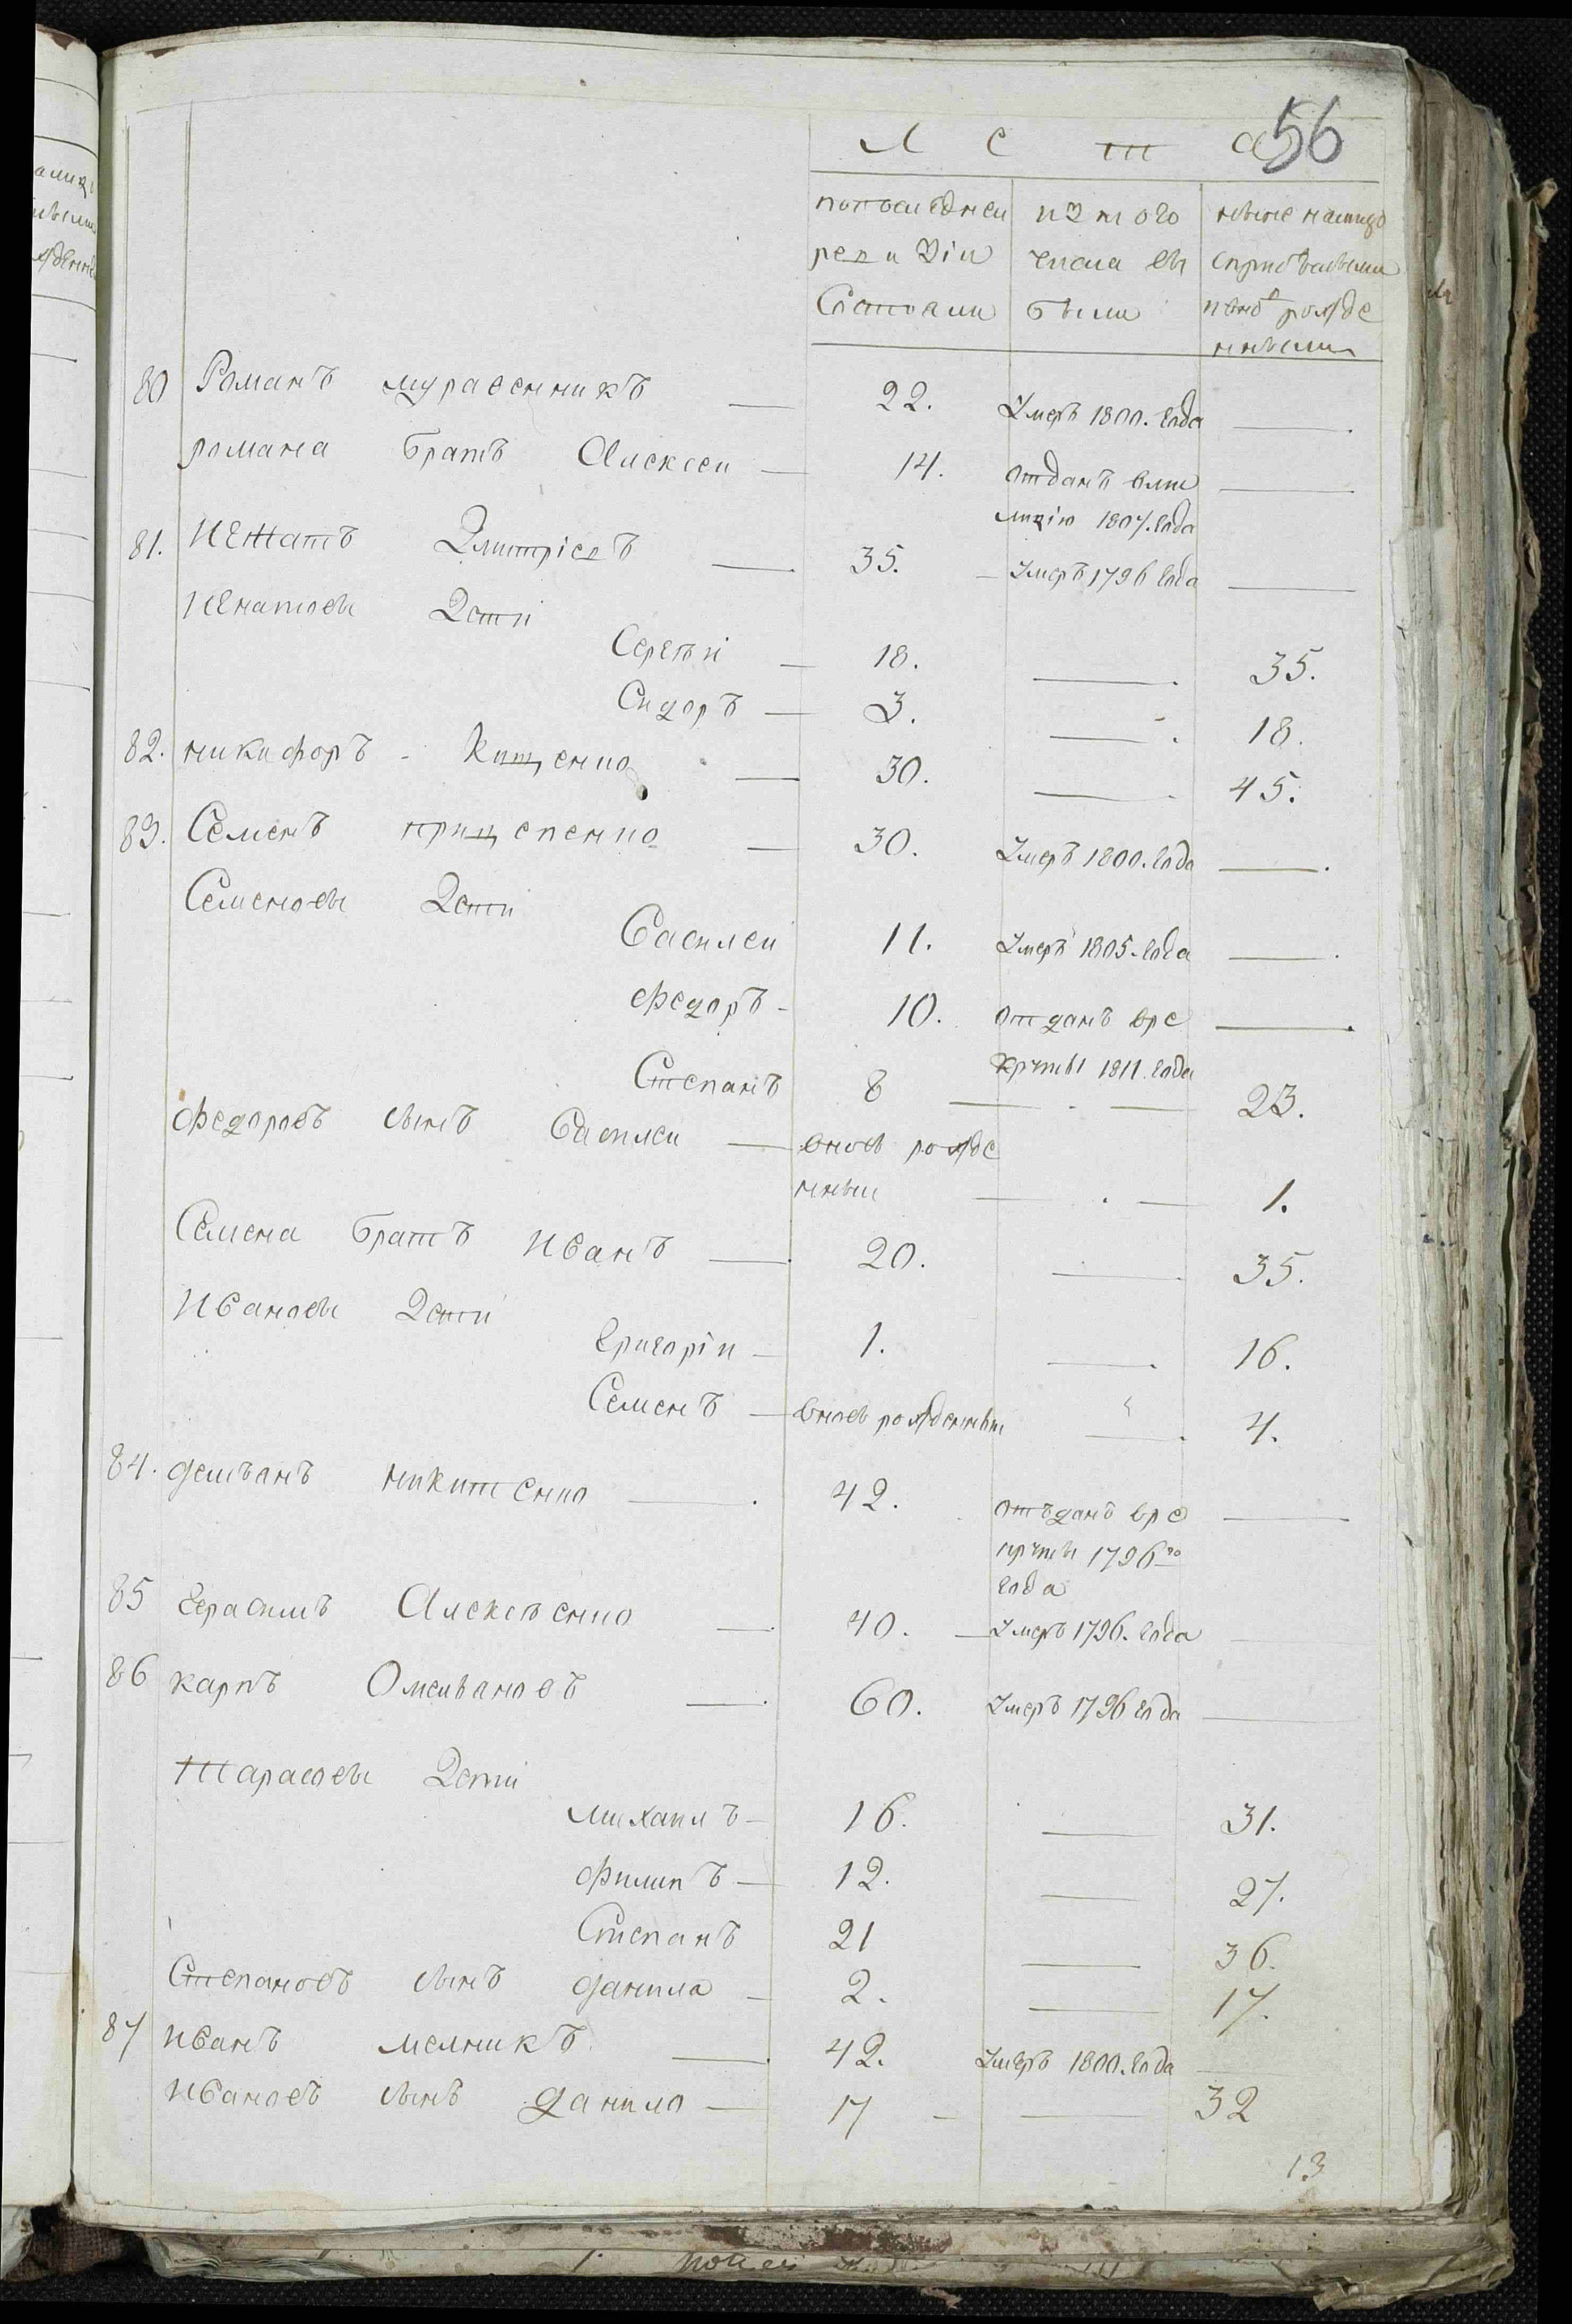 56
Л е т а
попоследнеи | изтого | ныне налицо
ревизiи | числа вы | сприбылыми
Состояли | были | ивно рожде
нными
80 Романъ муравенникъ — 22. Умеръ 1800. года —
романа братъ Алексеи — 14. отданъ вми —
лицiю 1807. года
81. Игнатъ Дмитрiевъ — 35. — Умеръ 1796 года —
Игнатовы Дети
Сергъи — 18. — 35.
Сидоръ — 3. — 18.
82. никифоръ Кищенко — 30. — 45.
83. Семенъ прищепенко — 30. Умеръ 1800. года —
Семеновы Дети
Василеи 11. Умеръ 1805. года —
Федоръ - 10. отданъ вре —
круты 1811. года
Степанъ 8 — 23.
Федоровъ сынъ Василеи — вновь рожде
нныи — 1.
Семена братъ Иванъ — 20. — 35.
Ивановы Дети
Григорiи — 1. — 16.
Семенъ — вновь рожденныи — 4.
84. демъанъ никитенко — 42. отъданъ вре —
круты 1796го
года
85 Герасимъ Алексъенко — 40. — Умеръ 1796. года —
86 карпъ Омеляновъ — 60. Умеръ 1796 года —
Тарасовы Дети
михаилъ — 16. — 31.
Филипъ — 12. — 27.
Степанъ 21 — 36.
Степановъ сынъ данила — 2. — 17.
87 Иванъ мелникъ — 42. Умеръ 1800. года —
Ивановъ сынъ данило — 17 — 32
13